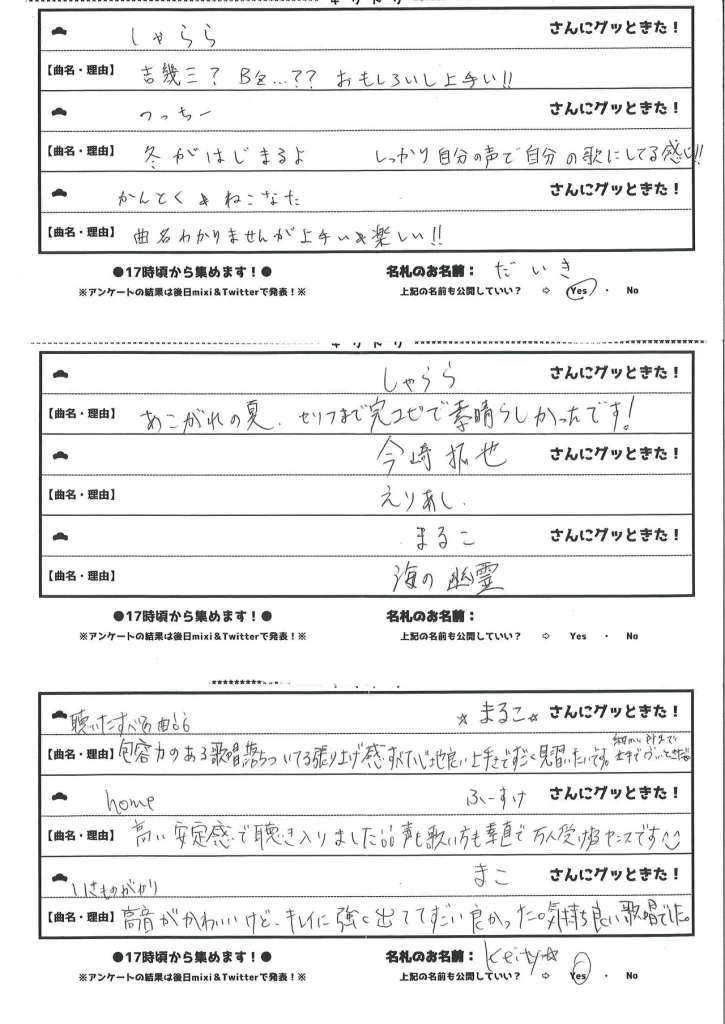 キリトリ
しゃらら さんにグッときた！
【曲名・理由】 吉幾三？ B'z…？？ おもしろいし上手い!!
つっちー さんにグッときた！
【曲名・理由】 冬がはじまるよ しっかり自分の声で自分の歌にしてる感じ!!
かんとく & ねこなた さんにグッときた！
【曲名・理由】 曲名わかりませんが上手い&楽しい!!
●17時頃から集めます！● 名札のお名前： だいき
※アンケートの結果は後日mixi＆Twitterで発表！※ 上記の名前も公開していい？ ⇨ Yes ・ No
キリトリ
しゃらら さんにグッときた！
【曲名・理由】 あこがれの夏．セリフまで完コピで素晴らしかったです！
今崎拓也 さんにグッときた！
【曲名・理由】 えりあし．
まるこ さんにグッときた！
【曲名・理由】 海の幽霊
●17時頃から集めます！● 名札のお名前：
※アンケートの結果は後日mixi＆Twitterで発表！※ 上記の名前も公開していい？ ⇨ Yes ・ No
聴いたすべての曲 ☆まるこ☆ さんにグッときた！
【曲名・理由】 包容力のある歌唱落ちついてる張り上げ感すべて心地良い上手ですごく見習いたいです。
home ふーすけ さんにグッときた！
【曲名・理由】 高い安定感で聴き入りました。声も歌い方も素直で万人受けするセンスです
いきものがかり まこ さんにグッときた！
【曲名・理由】 高音がかわいいけど、キレイに強く出ててすごい良かった。気持ち良い歌唱でした。
●17時頃から集めます！● 名札のお名前： Keity☆
※アンケートの結果は後日mixi＆Twitterで発表！※ 上記の名前も公開していい？ ⇨ Yes ・ No